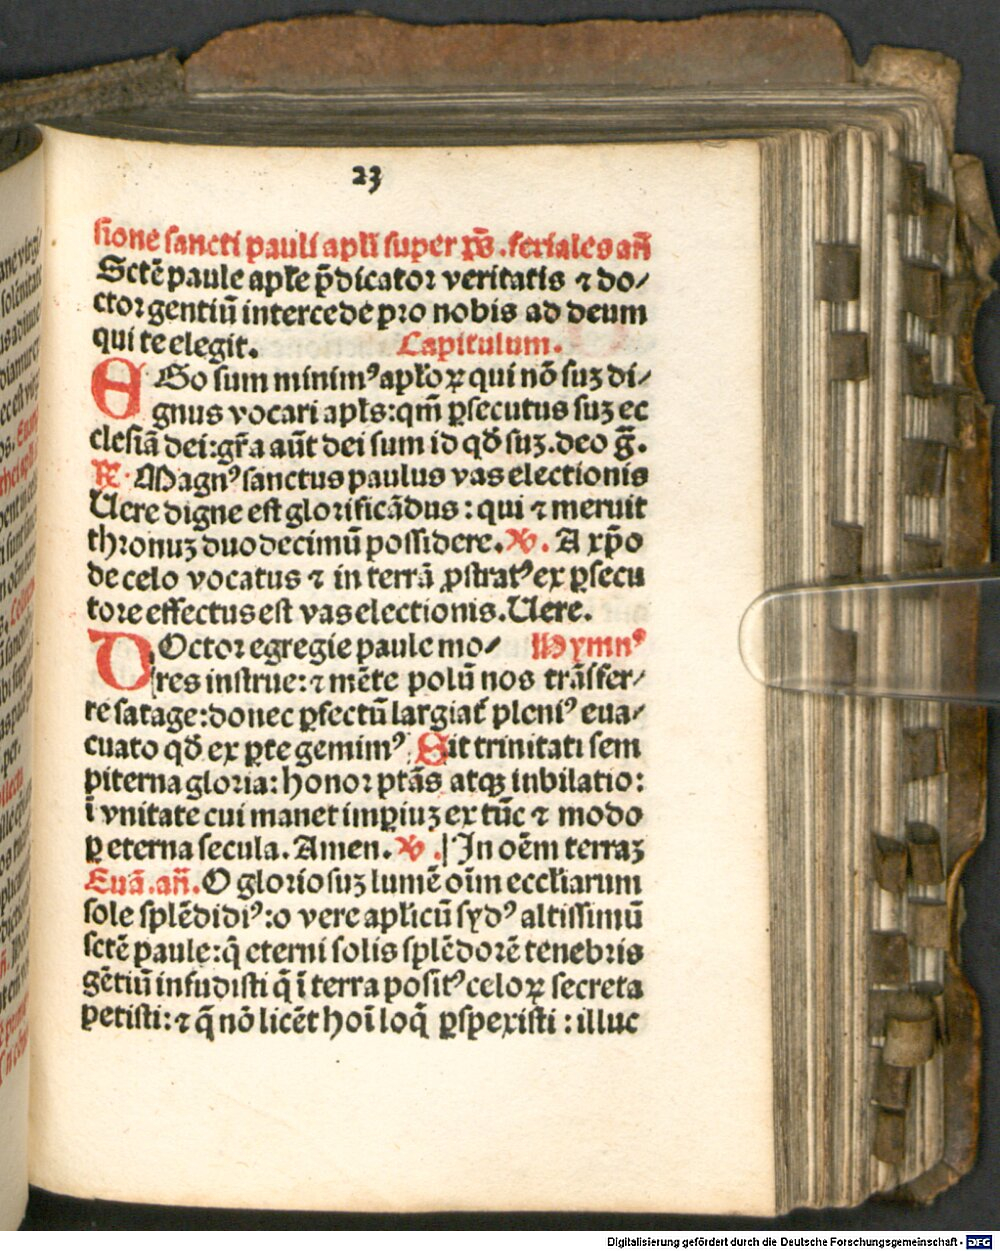 23
sione sancti pauli apłi super p̄s. feriales añ
Sctē paule apłe p̄dicator veritatis ⁊ do/
ctor gentiū intercede pro nobis ad deum
qui te elegit. Capitulum.
EGo sum minimꝰ apłoꝝ qui nō suꝫ di/
gnus vocari apłs: qm̄ ꝑsecutus suꝫ ec
clesiā dei: gr̄a aūt dei sum id qđ suꝫ. deo g̅.
℟. Magnꝰ sanctus paulus vas electionis
Uere digne est glorificādus: qui ⁊ meruit
thronuꝫ duodecimū possidere. ℣. A xp̄o
de celo vocatus ⁊ in terrā ꝓstratꝰ ex ꝑsecu
tore effectus est vas electionis. Uere.
DOctor egregie paule mo/ Hymnꝰ
res instrue: ⁊ mēte polū nos trāsfer/
re satage: donec ꝑfectū largiat᷑ pleniꝰ eua/
cuato qđ ex ꝑte gemimꝰ Sit trinitati sem
piterna gloria: honor ptās atqꝫ iubilatio:
ī vnitate cui manet imꝑiuꝫ ex tūc ⁊ modo
ꝑ eterna secula. Amen. ℣. In oēm terraꝫ
Euā. añ. O gloriosuꝫ lumē oīm eccłiarum
sole splēdidiꝰ: o vere apłicū sydꝰ altissimū
sctē paule: q̄ eterni solis splēdorē tenebris
gētiū infudisti q̄ ī terra positꝰ celoꝝ secreta
petisti: ⁊ q̄ nō licēt hoī loq̄ ꝑspexisti: illuc
Digitalisierung gefördert durch die Deutsche Forschungsgemeinschaft - DFG